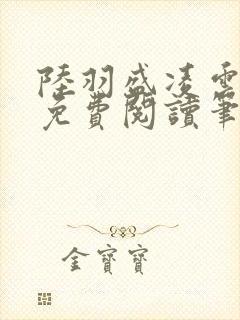 陸羽盛凌雲
免費閱讀筆
金寶寶